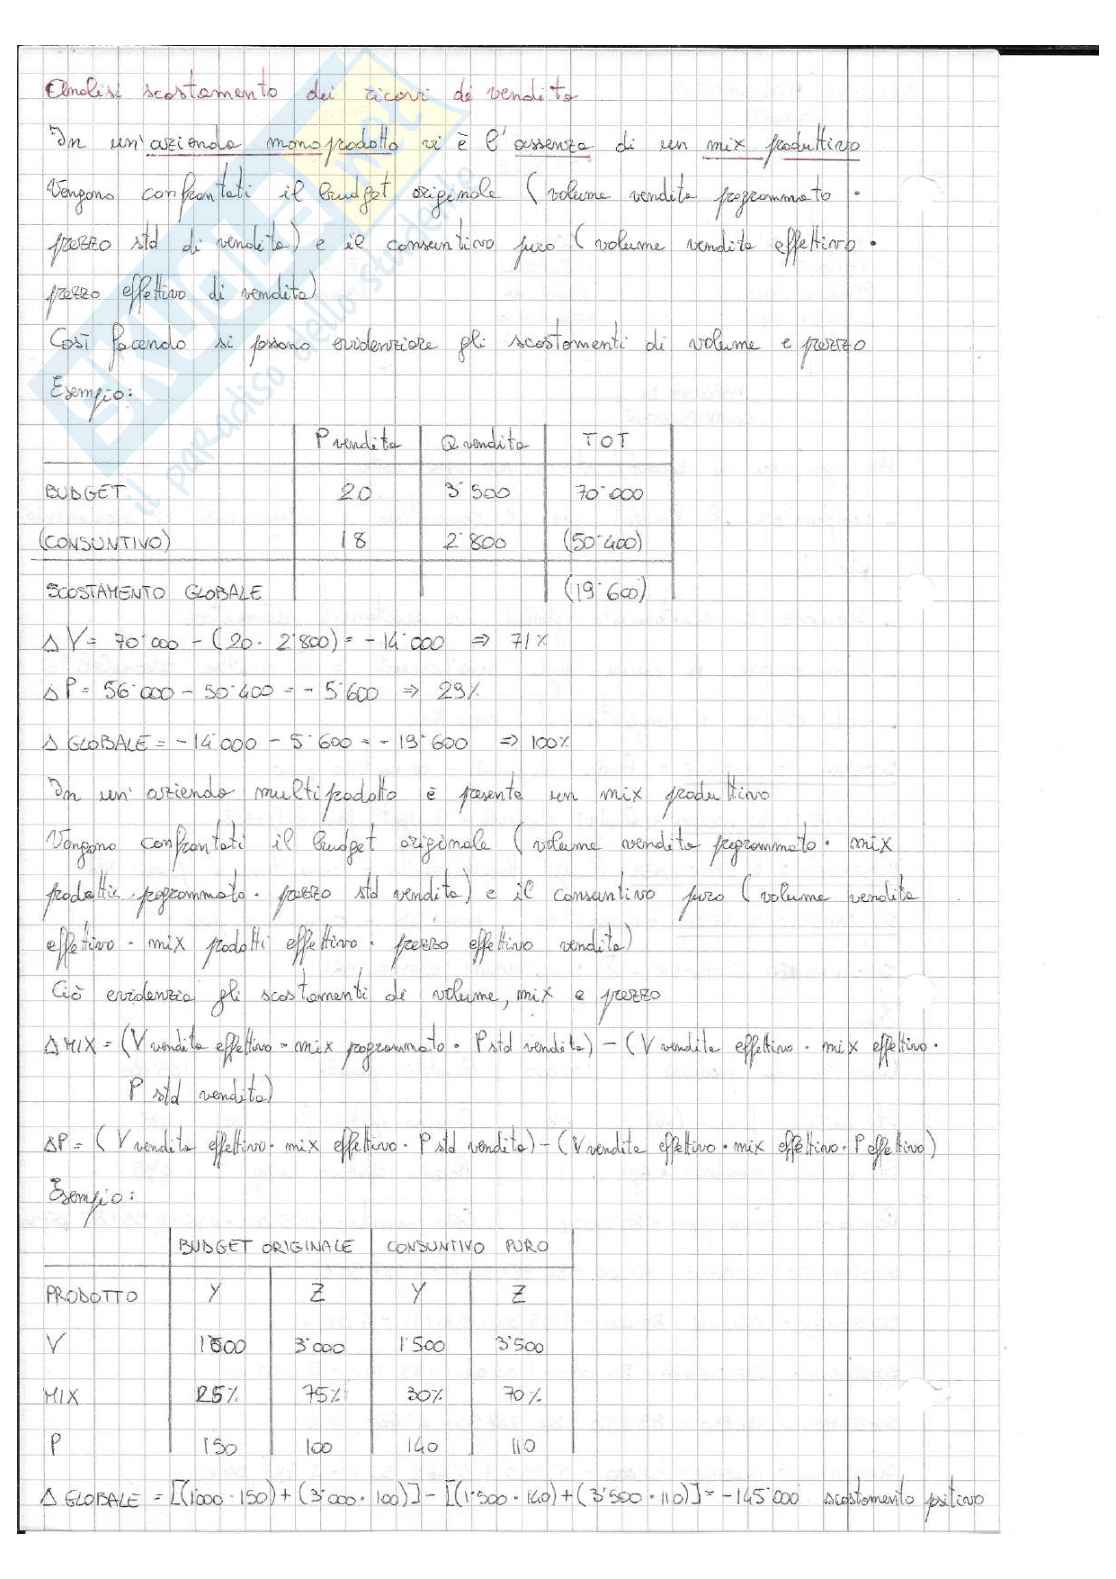 Analisi scostamento dei ricavi di vendita
In un'azienda monoprodotto vi è l'assenza di un mix produttivo
Vengono confrontati il budget originale (volume vendita programmato ·
prezzo std di vendita) e il consuntivo puro (volume vendita effettivo ·
prezzo effettivo di vendita)
Così facendo si possono evidenziare gli scostamenti di volume e prezzo
Esempio:
P vendita Q vendita TOT
BUDGET 20 3˙500 70˙000
(CONSUNTIVO) 18 2˙800 (50˙400)
SCOSTAMENTO GLOBALE (19˙600)
Δ V = 70˙000 - (20 · 2˙800) = - 14˙000 ⇒ 71%
Δ P = 56˙000 - 50˙400 = - 5˙600 ⇒ 29%
Δ GLOBALE = - 14˙000 - 5˙600 = - 19˙600 ⇒ 100%
In un'azienda multiprodotto è presente un mix produttivo
Vengono confrontati il budget originale (volume vendita programmato · mix
prodotti programmato · prezzo std vendita) e il consuntivo puro (volume vendita
effettivo · mix prodotti effettivo · prezzo effettivo vendita)
Ciò evidenzia gli scostamenti di volume, mix e prezzo
Δ MIX = (V vendita effettivo · mix programmato · P std vendita) - (V vendita effettivo · mix effettivo ·
P std vendita)
ΔP = (V vendita effettivo · mix effettivo · P std vendita) - (V vendita effettivo · mix effettivo · P effettivo)
Esempio:
BUDGET ORIGINALE CONSUNTIVO PURO
PRODOTTO Y Z Y Z
V 1˙000 3˙000 1˙500 3˙500
MIX 25% 75% 30% 70%
P 150 100 140 110
Δ GLOBALE = [(1˙000 · 150) + (3˙000 · 100)] - [(1˙500 · 140) + (3˙500 · 110)] = - 145˙000 scostamento positivo
il paradiso dello studente